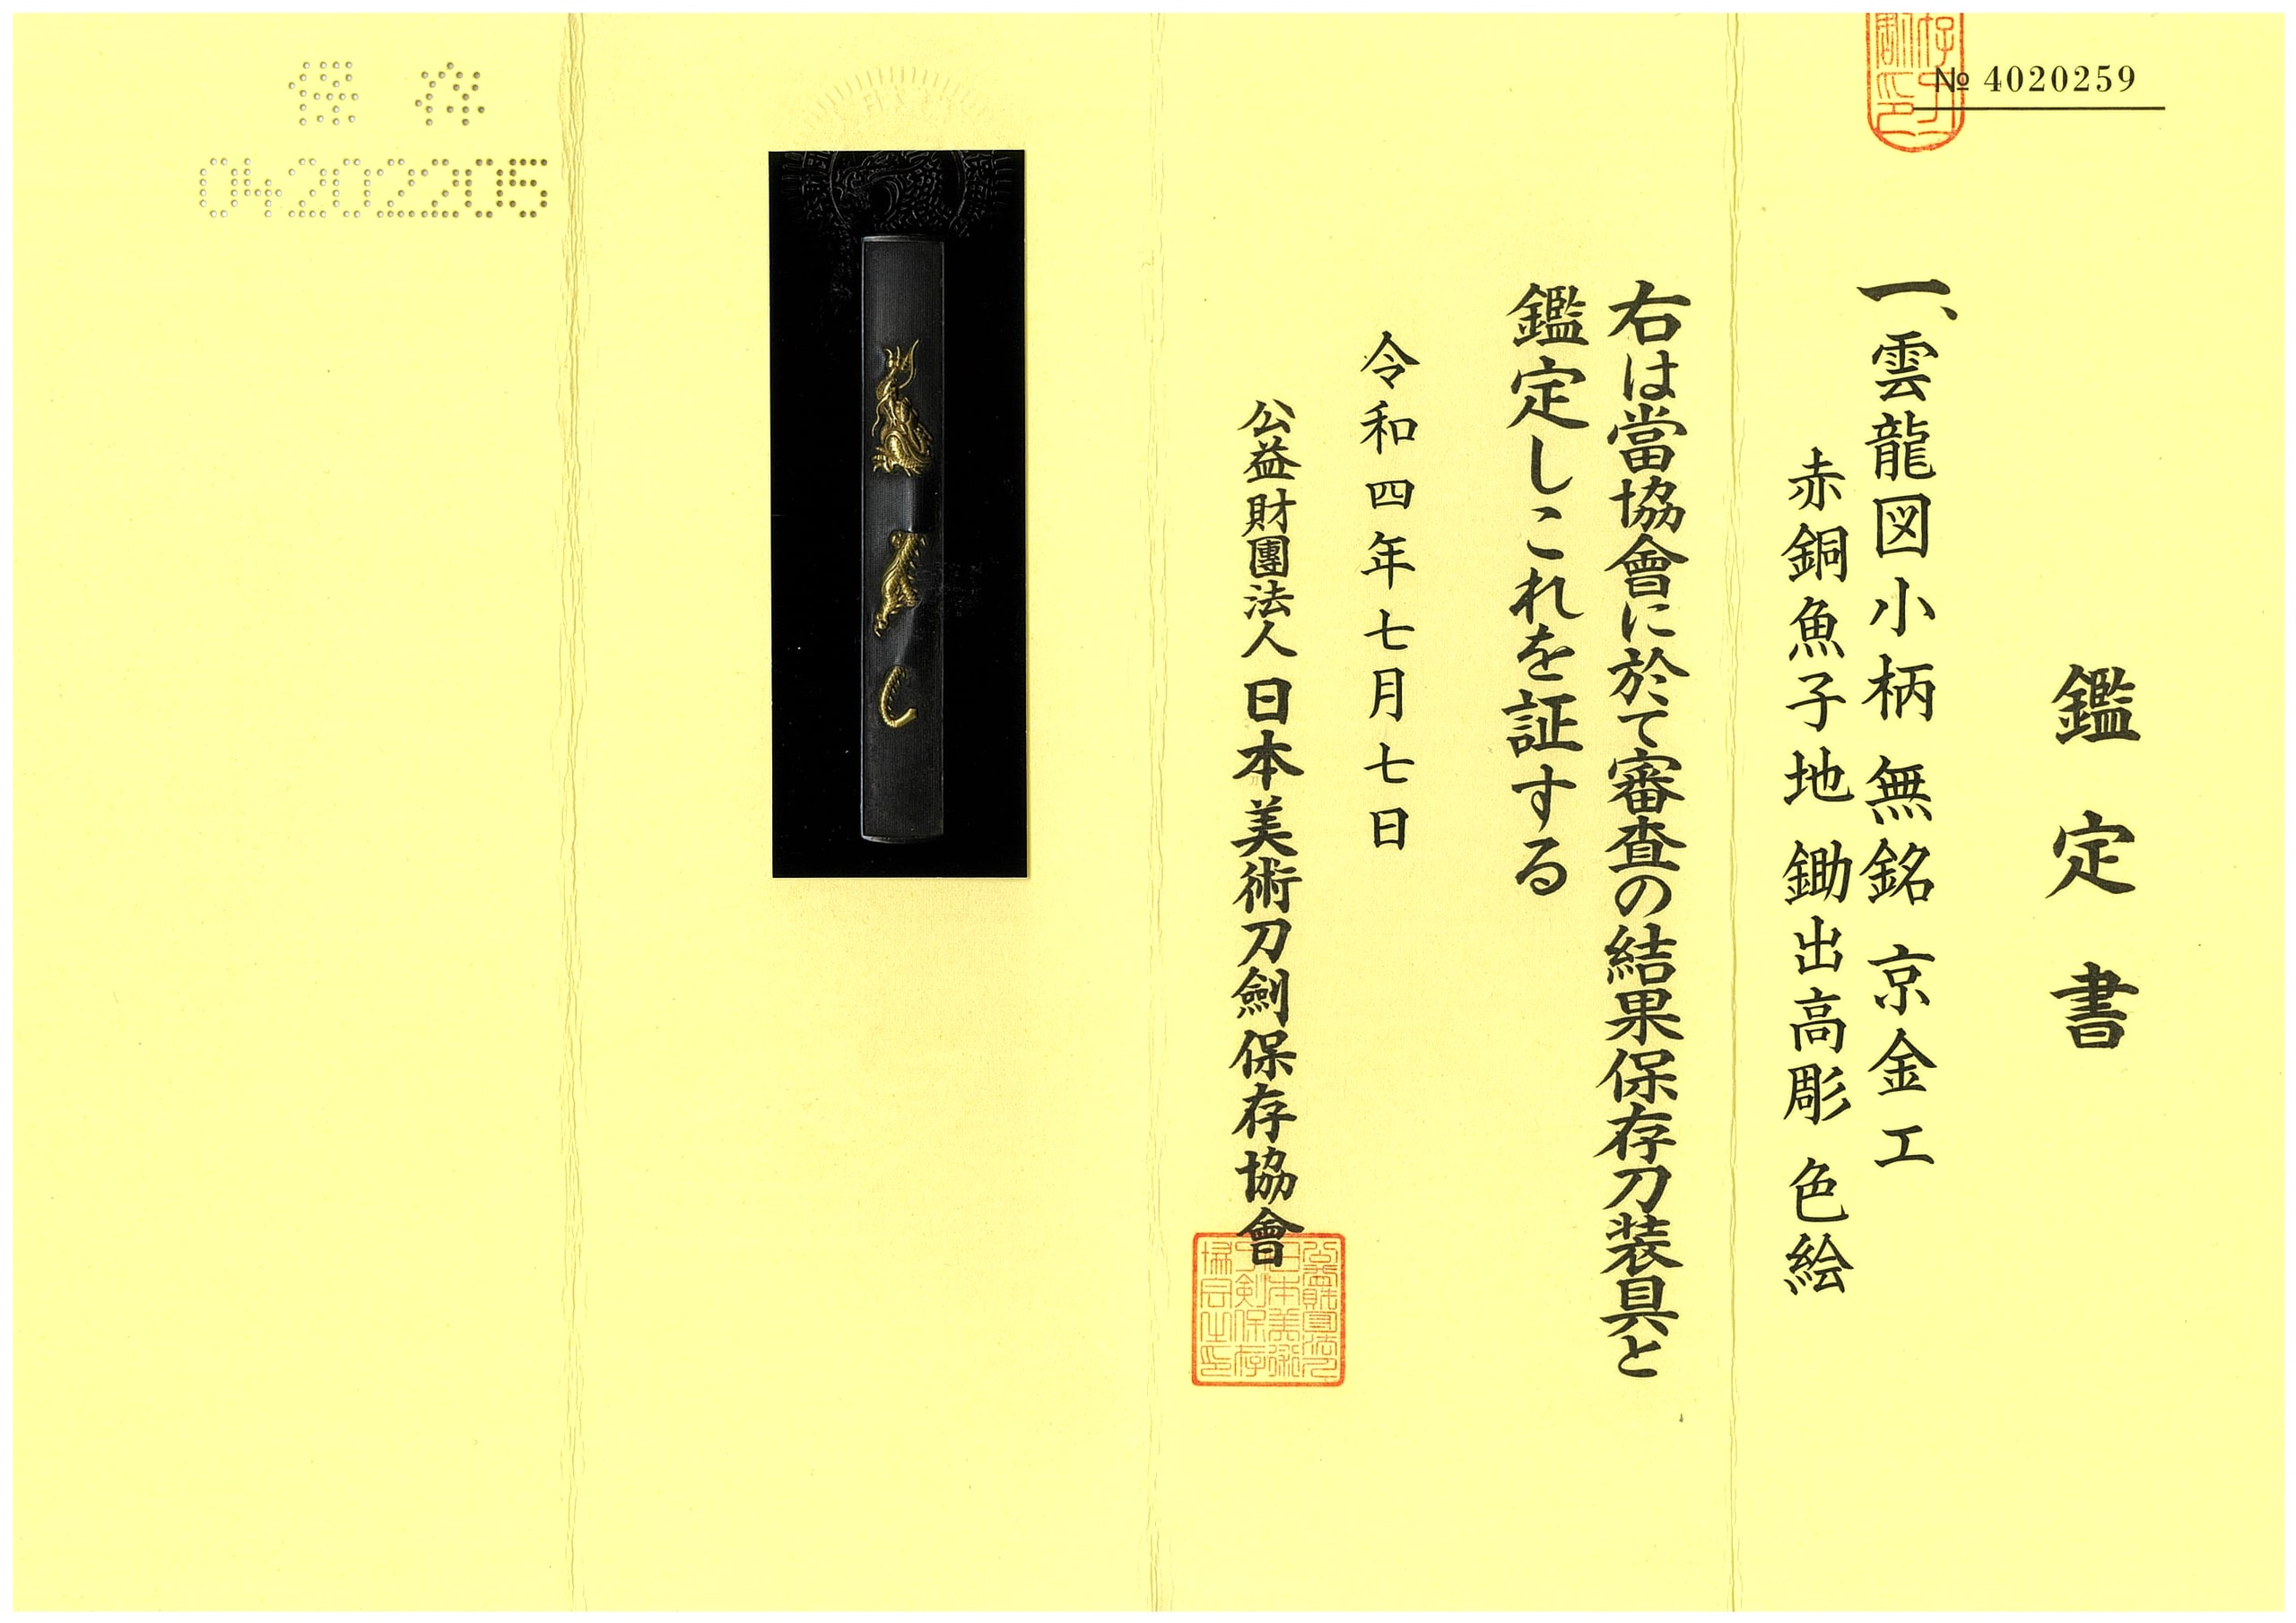 № 4020259
鑑定書
一、雲龍図小柄 無銘 京金工
赤銅魚子地 鋤出高彫 色絵
右は當協會に於て審査の結果保存刀装具と
鑑定しこれを証する
令和四年七月七日
公益財團法人 日本美術刀劍保存協會
公益財団法人
日本美術
刀剣保存
協会之印
保存
04202205